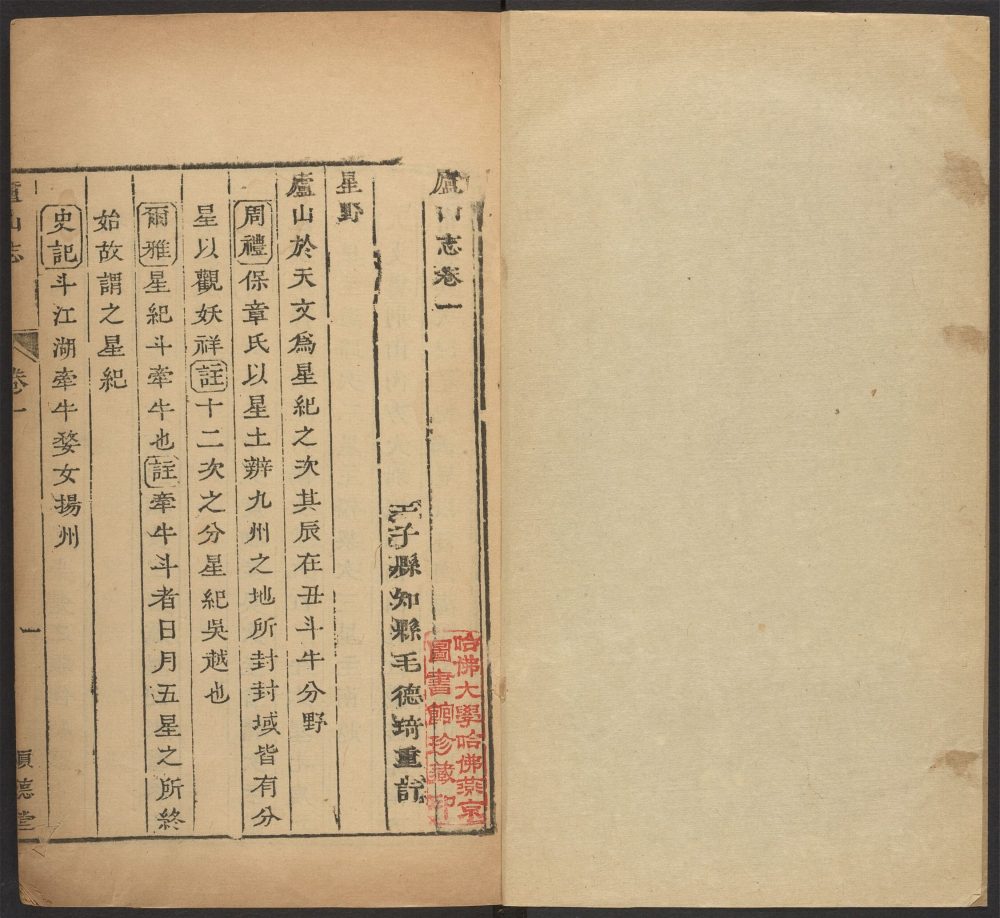 廬山志卷一
哈佛大學哈佛燕京
圖書館珍藏印
星子縣知縣毛德琦重訂
星野
廬山於天文為星紀之次其辰在丑斗牛分野
周禮保章氏以星土辨九州之地所封封域皆有分
星以觀妖祥註十二次之分星紀吳越也
爾雅星紀斗牽牛也註牽牛斗者日月五星之所終
始故謂之星紀
史記斗江湖牽牛婺女揚州
廬山志 卷一 一 順德堂